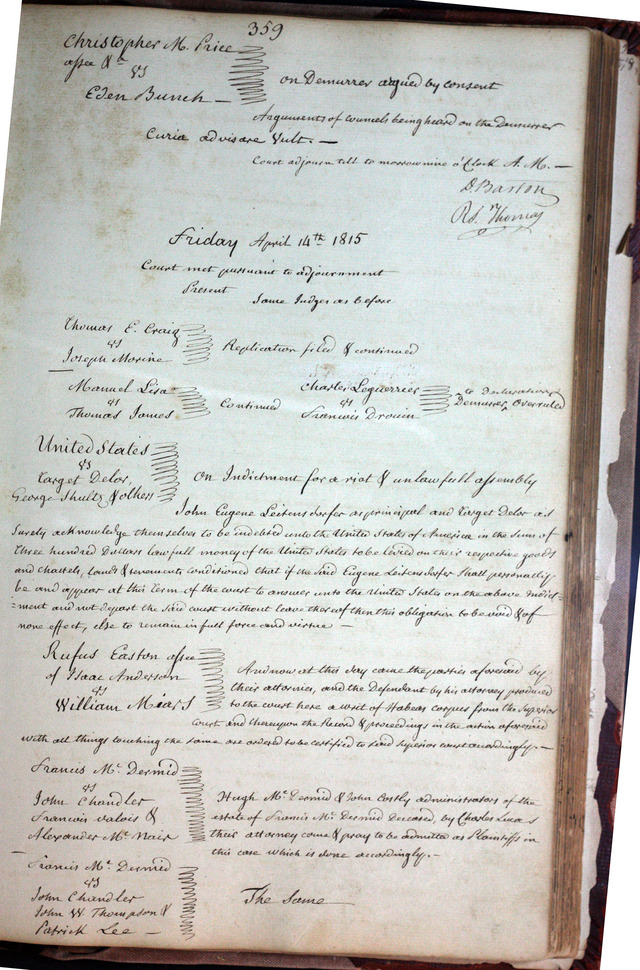 359
Christopher M. Price
assee &c
vs
Eden Bunch —
on Demurrer argued by consent
Arguments of councels being heard on the Demurrer
Curia advisare Vult. —
Court adjourn till to morrow nine o'Clock A. M. —
D. Barton
Rd. Thomas
Friday April 14th 1815
Court met pursuant to adjournment
Present
Same Judges as before
Thomas E. Craig
vs
Joseph Morine
Replication filed & continued
Manuel Lisa
vs
Thomas James
Continued
Charles Leguerrier
vs
Francois Drouin
to Declaration
Demurrer, Overruled
United States
vs
Target Delor,
George Shultz & others
On Indictment for a riot & unlawfull assembly
John Eugene Leitensdorfer as principal and Target Delor as
surety acknowledge themselves to be indebted unto the United States of America in the Sum of
three hundred Dollars lawfull money of the United States to be levied on their respective goods
and chattels, lands & tenements conditioned that if the said Eugene Leitensdorfer shall personally
be and appear at this term of the court to answer unto the United States on the above Indict=
=ment and not depart the said court without leave thereof then this obligation to be void & of
none effect, else to remain in full force and virtue —
Rufus Easton assee
of Isaac Anderson
vs
William Mears
And now at this day came the parties aforesaid by
their attornies, and the Defendant by his attorney produced
to the court here a writ of Habeas corpus from the Superior
Court and thereupon the Record & proceedings in the action aforesaid
with all things touching the same are ordered to be certified to said Superior court accordingly. —
Francis Mc Dermid
vs
John Chandler
Francois Valois &
Alexander Mc Nair
Hugh Mc Dermid & John Costly administrators of the
estate of Francis Mc Dermid Deceased, by Charles Lucas
their attorney came & pray to be admitted as Plaintiffs in
this case which is done accordingly. —
Francis Mc Dermid
vs
John Chandler
John W Thompson &
Patrick Lee —
The Same